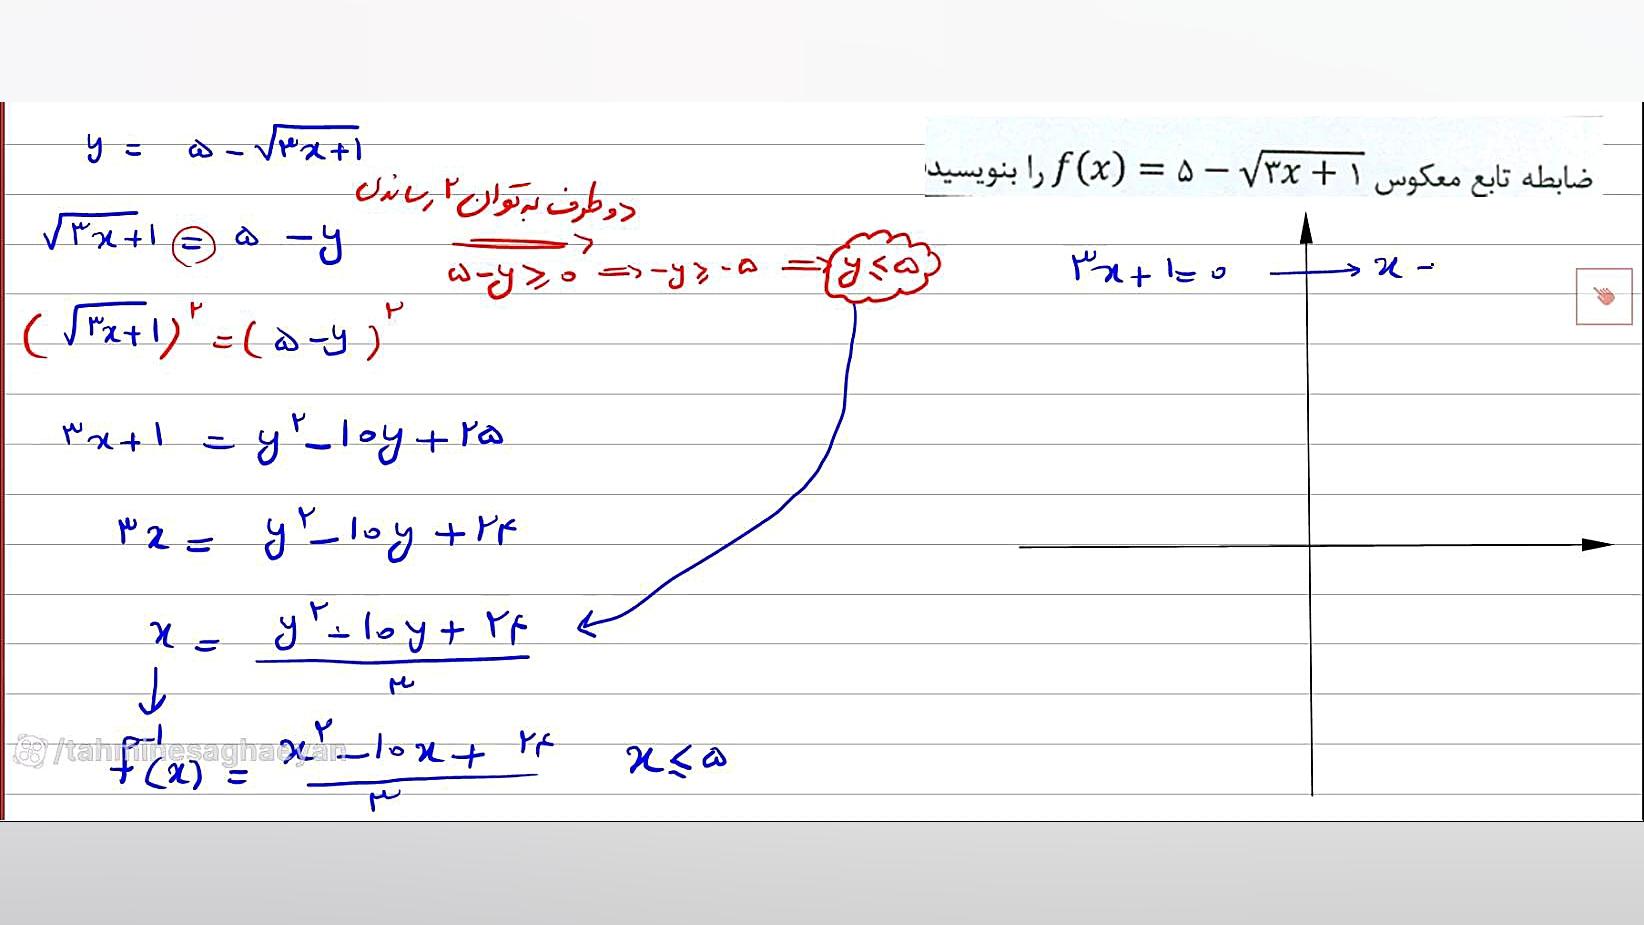 ضابطه تابع معکوس f(x) = ۵ − √(۳x + ۱) را بنویسید
y = ۵ − √(۳x+۱)
√(۳x+۱) = ۵ − y
دو طرف به توان ۲ رساندن
۵−y ≥ ۰ ⇒ −y ≥ −۵ ⇒ y ≤ ۵
(√(۳x+۱))^۲ = (۵ − y)^۲
۳x+۱ = y^۲ − ۱۰y + ۲۵
۳x = y^۲ − ۱۰y + ۲۴
x = (y^۲ − ۱۰y + ۲۴)/۳
f^−۱(x) = (x^۲ − ۱۰x + ۲۴)/۳ x ≤ ۵
۳x + ۱ = ۰ → x −
/tahminesaghaeyan